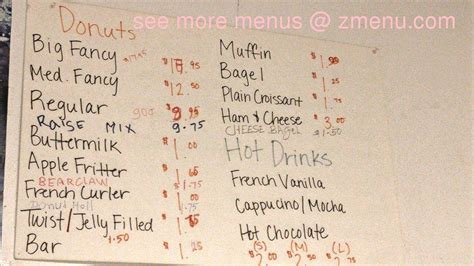 see more menus @ zmenu.com
Donuts
Big Fancy
Med. Fancy $12.50
Regular
RAISE MIX 9.75
Buttermilk $1.00
Apple Fritter
BEARCLAW $1.75
French Curler
Donut Holl
Twist/Jelly Filled
Bar 1.50
Muffin
Bagel
Plain Croissant
Ham & Cheese $3.00
CHEESE BAGEL $1.50
Hot Drinks
French Vanilla
Cappucino/Mocha
Hot Chocolate
(S) (M) (L)